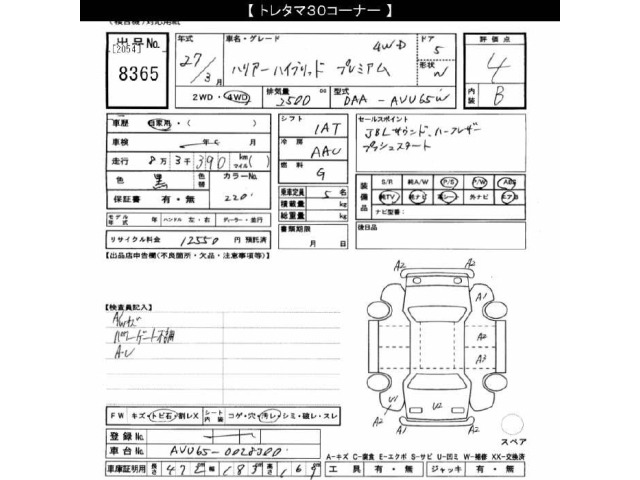 【 トレタマ30コーナー 】
(検査機)対応用紙
出品No. 年式 車名・グレード ドア 評価点
[2054] 27/3月 ハリアーハイブリッド プレミアム 4WD 5 4
8365 形状 W
2WD・4WD 排気量 2500 cc 型式 DAA - AVU65W 内装 B
車歴 自家用・( ) シフト 1AT セールスポイント
車検 年 月 冷房 AAC JBLサウンド、ハーフレザー
走行 8万3千390 km マイル ( ) 燃料 G プッシュスタート
色 黒 色替 カラーNo.
保証書 有・無 220
乗車定員 5 名
積載量 kg
総重量 kg
装備品 S/R 純A/W P/S P/W ABS
純TV 純ナビ 革シート 外ナビ エアB
ナビ型番:
モデル年式 年 ハンドル 左・右 ディーラー・並行
書類期限 月 日
後日品
リサイクル料金 12550 円 預託済
【出品店申告欄(不良箇所・欠品・注意事項等)】
【検査員記入】
A/Wキズ
パワーゲート不調
A・U
A2 A2
A1
A2
A3
U1 U2
A2 A1
スペア
FW キズ・トビ石・割レX シート内装 コゲ・穴・汚レ・シミ・破レ・スレ
登録No.
車台No. AVU65-0028300
A-キズ C-腐食 E-エクボ S-サビ U-凹ミ W-補修 XX-交換済
車庫証明用 長さ 472 幅 183 高さ 169 工具 有・無 ジャッキ 有・無